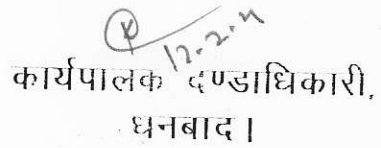 12.2.11
कार्यपालक दण्डाधिकारी,
धनबाद।